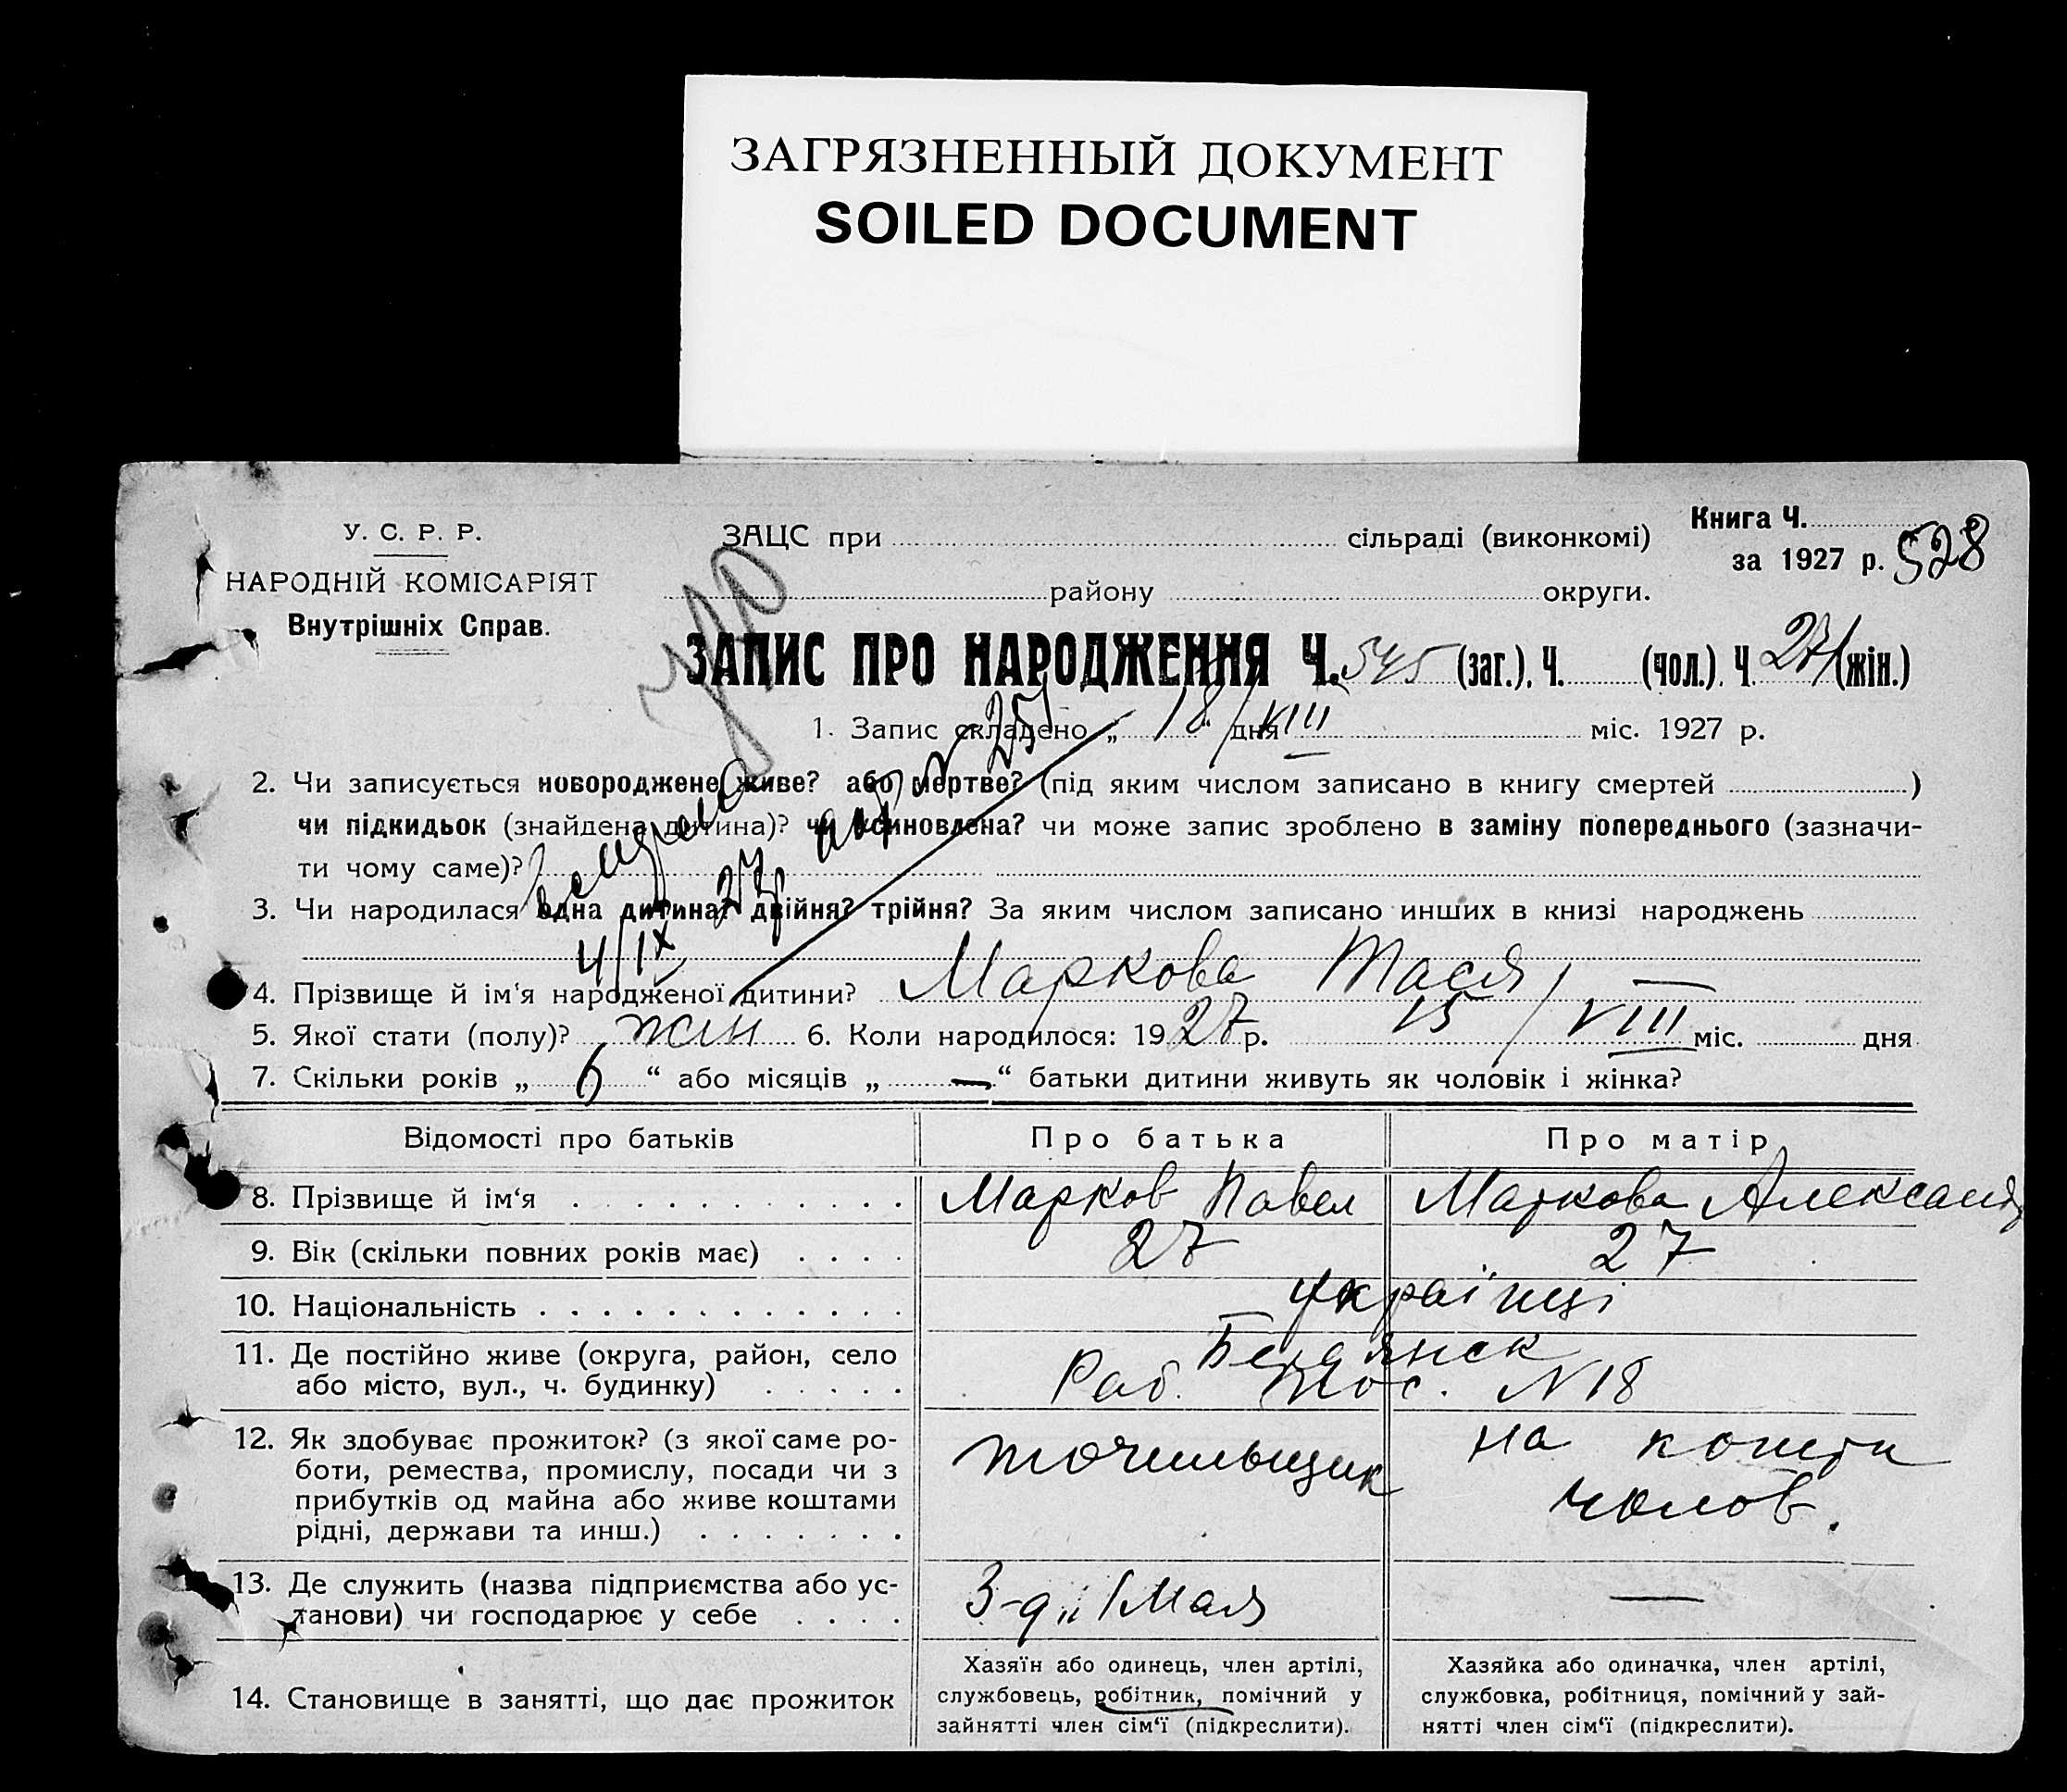 ЗАГРЯЗНЕННЫЙ ДОКУМЕНТ
SOILED DOCUMENT
У. С. Р. Р.
НАРОДНІЙ КОМІСАРІЯТ
Внутрішніх Справ.
ЗАЦС при сільраді (виконкомі)
району округи.
Книга Ч.
за 1927 р. 528
ЗАПИС ПРО НАРОДЖЕННЯ Ч. 545 (заг.). Ч. (чол.). Ч. 271 (жін.)
1. Запис складено „ 18 “ дня VIII міс. 1927 р.
2. Чи записується новороджене живе? або мертве? (під яким числом записано в книгу смертей )
чи підкидьок (знайдена дитина)? чи усиновлена? чи може запис зроблено в заміну попереднього (зазначи-
ти чому саме)?
3. Чи народилася одна дитина? двійня? трійня? За яким числом записано инших в книзі народжень
4/IX 27р
4. Прізвище й ім'я народженої дитини? Маркова Тася
5. Якої стати (полу)? жін 6. Коли народилося: 1927 р. 15/VIII міс. дня
7. Скільки років „ 6 “ або місяців „ — “ батьки дитини живуть як чоловік і жінка?
Відомості про батьків Про батька Про матір
8. Прізвище й ім'я Марков Павел Маркова Александ
9. Вік (скільки повних років має) 27 27
10. Національність українці
11. Де постійно живе (округа, район, село Бердянск
або місто, вул., ч. будинку) Раб. Пос. N 18
12. Як здобуває прожиток? (з якої саме ро- точильщик на кошти
боти, ремества, промислу, посади чи з
прибутків од майна або живе коштами чолов.
рідні, держави та инш.)
13. Де служить (назва підприємства або ус- З-д „ 1 Мая —
танови) чи господарює у себе
14. Становище в занятті, що дає прожиток
Хазяїн або одинець, член артілі,
службовець, робітник, помічний у
зайнятті член сім'ї (підкреслити).
Хазяйка або одиначка, член артілі,
службовка, робітниця, помічний у зай-
нятті член сім'ї (підкреслити).